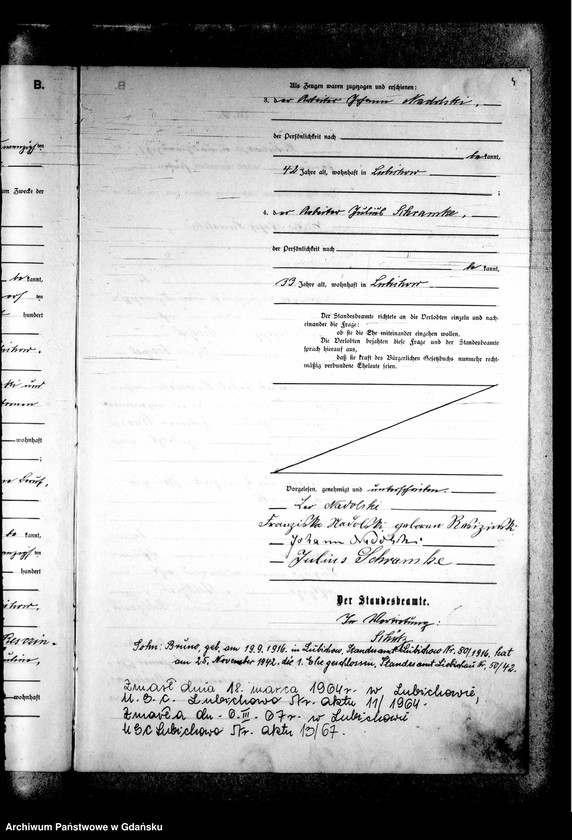 B.
Als Zeugen waren zugezogen und erschienen:
3. der Arbeiter Johann Nadolski,
der Persönlichkeit nach
be kannt,
42 Jahre alt, wohnhaft in Lubichow
;
4. der Arbeiter Julius Schramke,
der Persönlichkeit nach
be kannt,
33 Jahre alt, wohnhaft in Lubichow
Der Standesbeamte richtete an die Verlobten einzeln und nach-
einander die Frage:
ob sie die Ehe miteinander eingehen wollen.
Die Verlobten bejahten diese Frage und der Standesbeamte
sprach hierauf aus,
daß sie kraft des Bürgerlichen Gesetzbuchs nunmehr recht-
mäßig verbundene Eheleute seien.
Vorgelesen, genehmigt und unterschrieben.
Leo Nadolski
Franziska Nadolski geborene
Johann Nadolski
Julius Schramke
Der Standesbeamte.
In Vertretung:
Schütz
Sohn: Bruno, geb. am 19.9.1916. in Lubichow, Standesamt Lubichow Nr. 50/1916, hat
am 25. November 1942. die 1. Ehe geschlossen, Standesamt Liebichau Nr. 50/42.
Zmarł dnia 18. marca 1964r. w Lubichowie,
U.S.C. Lubichowo Nr. aktu 11/1964.
Zmarła dn. 6.III.67r. w Lubichowie
USC Lubichowo Nr. aktu 13/67.
um Zwecke der
be kannt,
hundert
und
wohnhaft
;
kannt,
hundert
wohnhaft
Archiwum Państwowe w Gdańsku